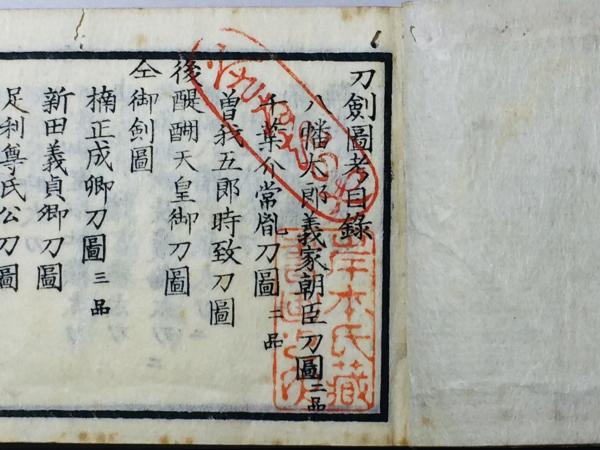 刀劍圖考目錄
八幡太郎義家朝臣刀圖二品
千葉介常胤刀圖二品
曽我五郎時致刀圖
後醍醐天皇御刀圖
仝御劍圖
楠正成卿刀圖三品
新田義貞卿刀圖
足利尊氏公刀圖
岸本氏藏